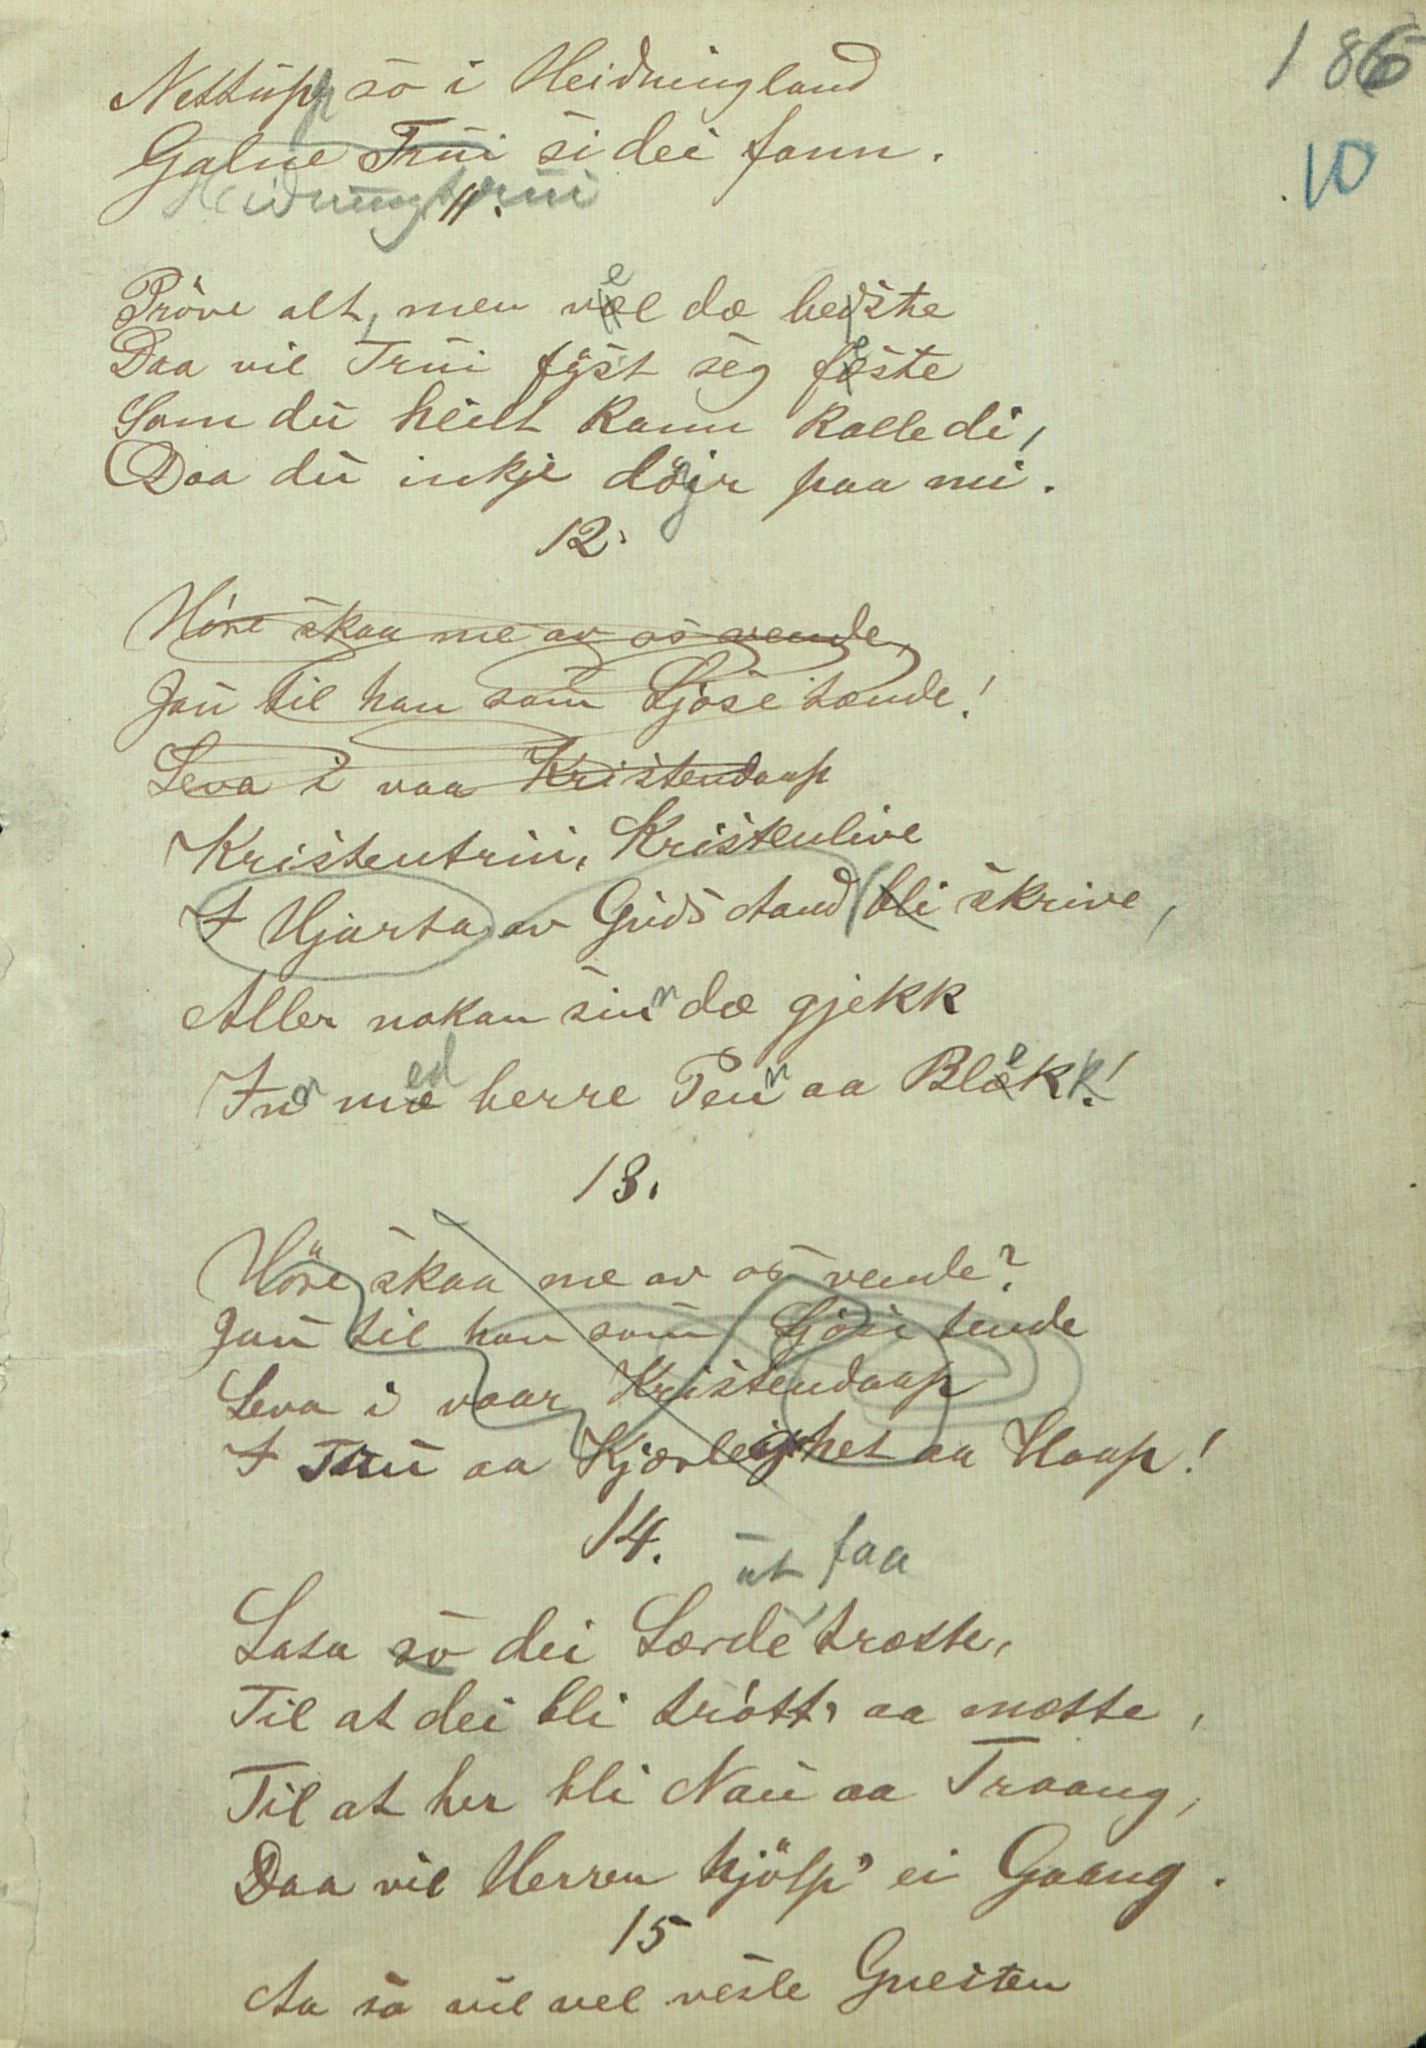 186
10
Nettupp so i Heidningland
Galne Trui si dei fann.
Heidningtrui
11.
Pröve alt, men vel dæ bedste
Daa vil Trui fyst seg feste
Som du heilt kann kalle di,
Daa du inkje döyr paa mi.
12.
Höre skaa me av os vende,
Jau til han som Ljose tænde!
Leva i vaa Kristendaap
Kristentrui, Kristenlive
I Hjarta av Guds Aand bli skrive,
Aller nokan sinn dæ gjekk
Inn med herre Penn aa Blekk!
13.
Höre skaa me av os vende?
Jau til han som Ljose tende
Leva i vaar Kristendaap
I Tru aa Kjærleighet aa Haap!
14.
ut faa
Lasa so dei Lærde træste,
Til at dei bli trött, aa mætte,
Til at her bli Nau aa Traang,
Daa vil Herren hjölp' ei Gaang.
15
Aa so vil vel vesle Gneisten